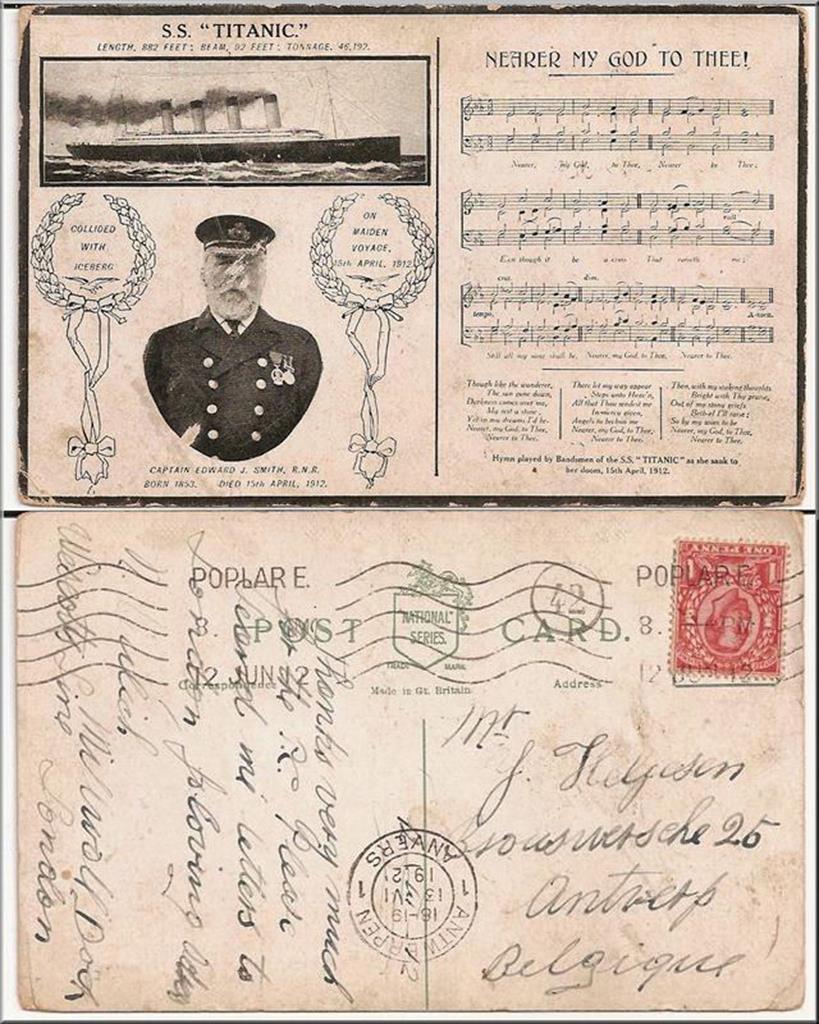 S.S. "TITANIC."
LENGTH, 882 FEET: BEAM, 92 FEET: TONNAGE, 46,192.
COLLIDED
WITH
ICEBERG
ON
MAIDEN
VOYAGE,
15th APRIL, 1912
CAPTAIN EDWARD J. SMITH, R.N.R.
BORN 1853. DIED 15th APRIL, 1912.
NEARER MY GOD TO THEE!
Nearer, my God, to Thee, Nearer to Thee;
E'en though it be a cross That raiseth me;
cres. dim.
Still all my song shall be, Nearer, my God, to Thee, Nearer to Thee.
Though like the wanderer,
The sun gone down,
Darkness comes over me,
My rest a stone;
Yet in my dreams I'd be
Nearer, my God, to Thee,
Nearer to Thee.
There let my way appear
Steps unto Heav'n,
All that Thou sendest me
In mercy given,
Angels to beckon me
Nearer, my God, to Thee,
Nearer to Thee.
Then, with my waking thoughts
Bright with Thy praise,
Out of my stony griefs
Beth-el I'll raise;
So by my woes to be
Nearer, my God, to Thee,
Nearer to Thee.
Hymn played by Bandsmen of the S.S. "TITANIC" as she sank to
her doom, 15th April, 1912.
POPLAR E.
12 JUN 12
42
POPLAR E.
POST CARD.
"NATIONAL"
SERIES.
TRADE MARK
Correspondence
Made in Gt. Britain
Address
ONE PENNY
Thanks very much
for the
letters to
London
Millwall Dock
London
Line
Mr
J.
25
Antwerp
Belgique
1 ANTWERPEN 1
18-19
13 VI
ANVERS